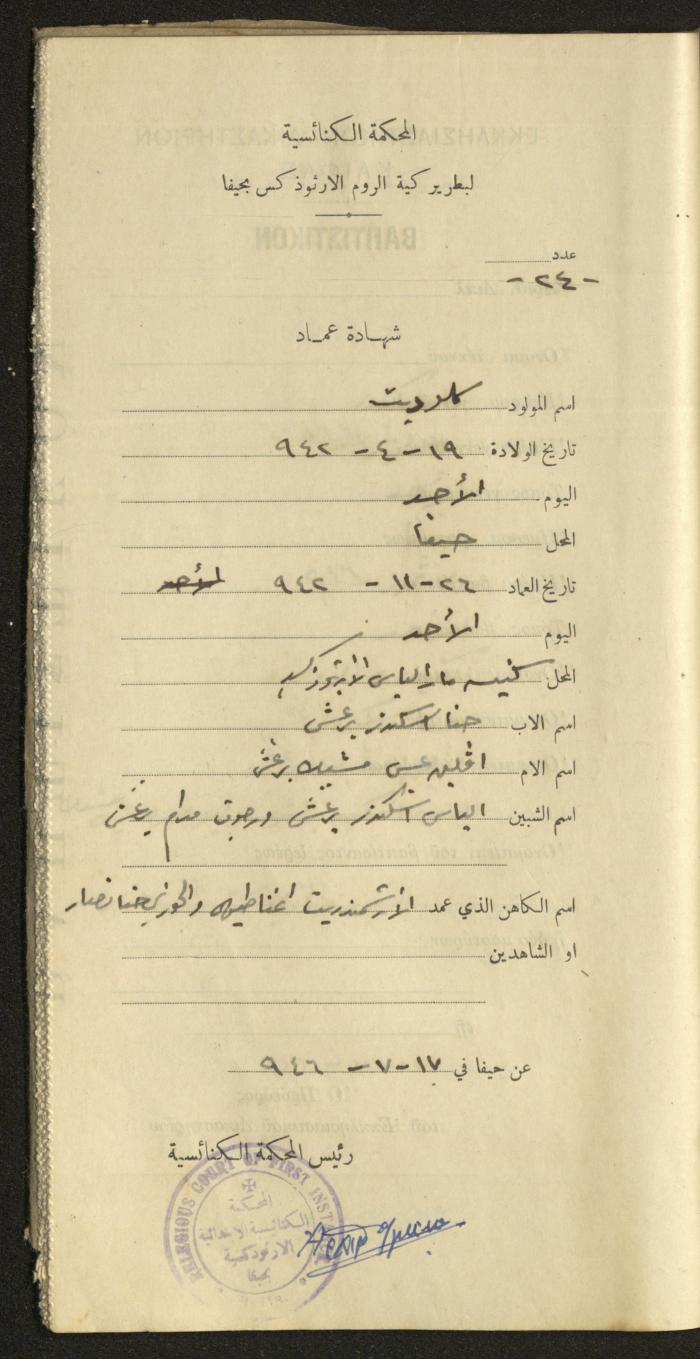 المحكمة الكنائسية
لبطريركية الروم الارثوذكس بحيفا
عدد
-٢٤-
شهادة عماد
اسم المولود كلوديت
تاريخ الولادة ١٩-٤- ٩٤٢
اليوم الأحد
المحل حيفا
تاريخ العماد ٢٦-١١- ٩٤٢ الأحد
اليوم الأحد
المحل كنيسة مار الياس الارثوذكسية
اسم الاب حنا اسكندر برغش
اسم الام برغش
اسم الشبين الياس اسكندر برغش مدام برغش
اسم الكاهن الذي عمد الأرشمندريت اغناطيوس والخوري حنا نصار
او الشاهدين
عن حيفا في ١٧-٧- ٩٤٦
رئيس المحكمة الكنائسية
RELEGIOUS COURT OF FIRST INSTA
المحكمة
الكنائسية الابتدائية
الارثوذكسية
بحيفا